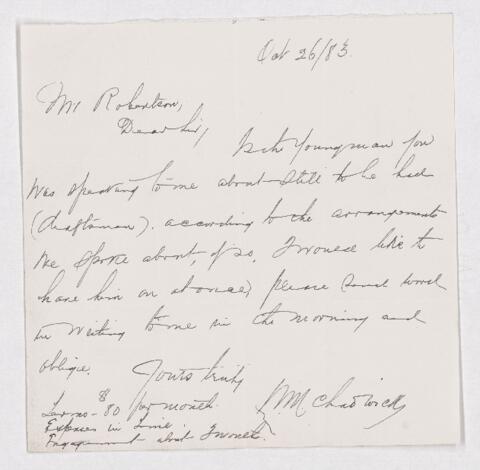 Oct 26/83.
Mr Robertson,
Dear Sir,
Is the Youngman you
was speaking to me about still to be had
(draftsman). according to the arrangements
We spoke about, if so, I would like to
have him on at once, please send word
in writing to me in the morning and
oblige.
Yours truly
W M Chadwick
8
Terms - 80 per month.
Expenses in
Engagement about 2 month.